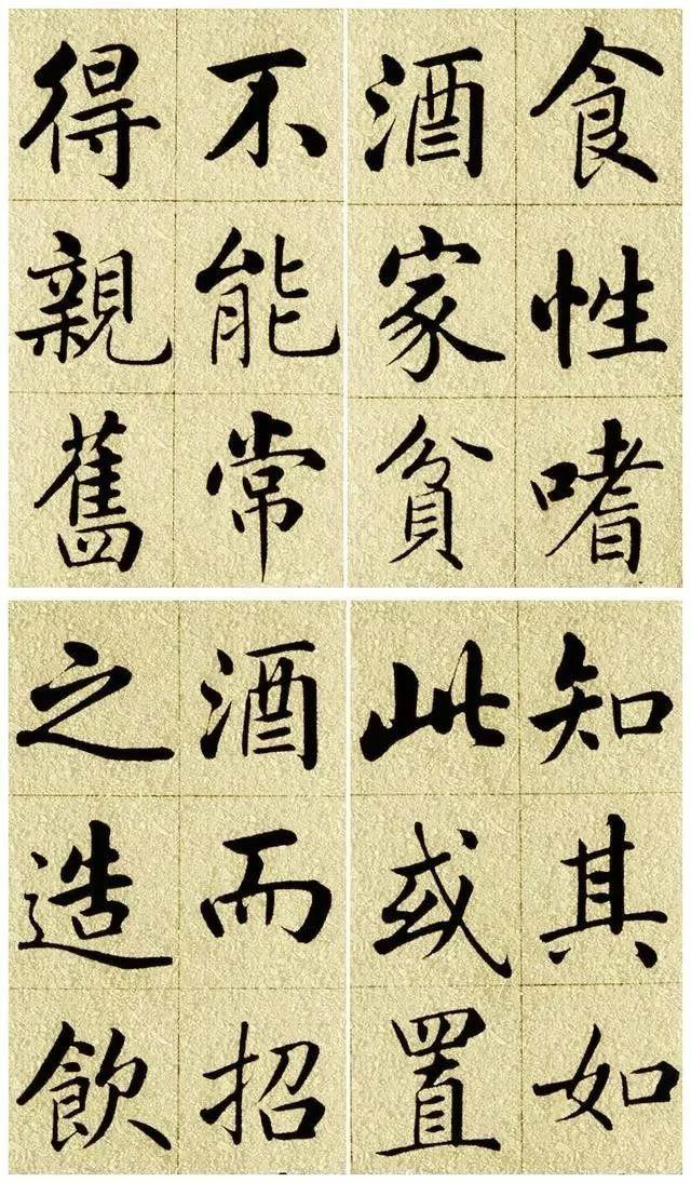 食性嗜
酒家貧
不能常
得親舊
知其如
此或置
酒而招
之造飲